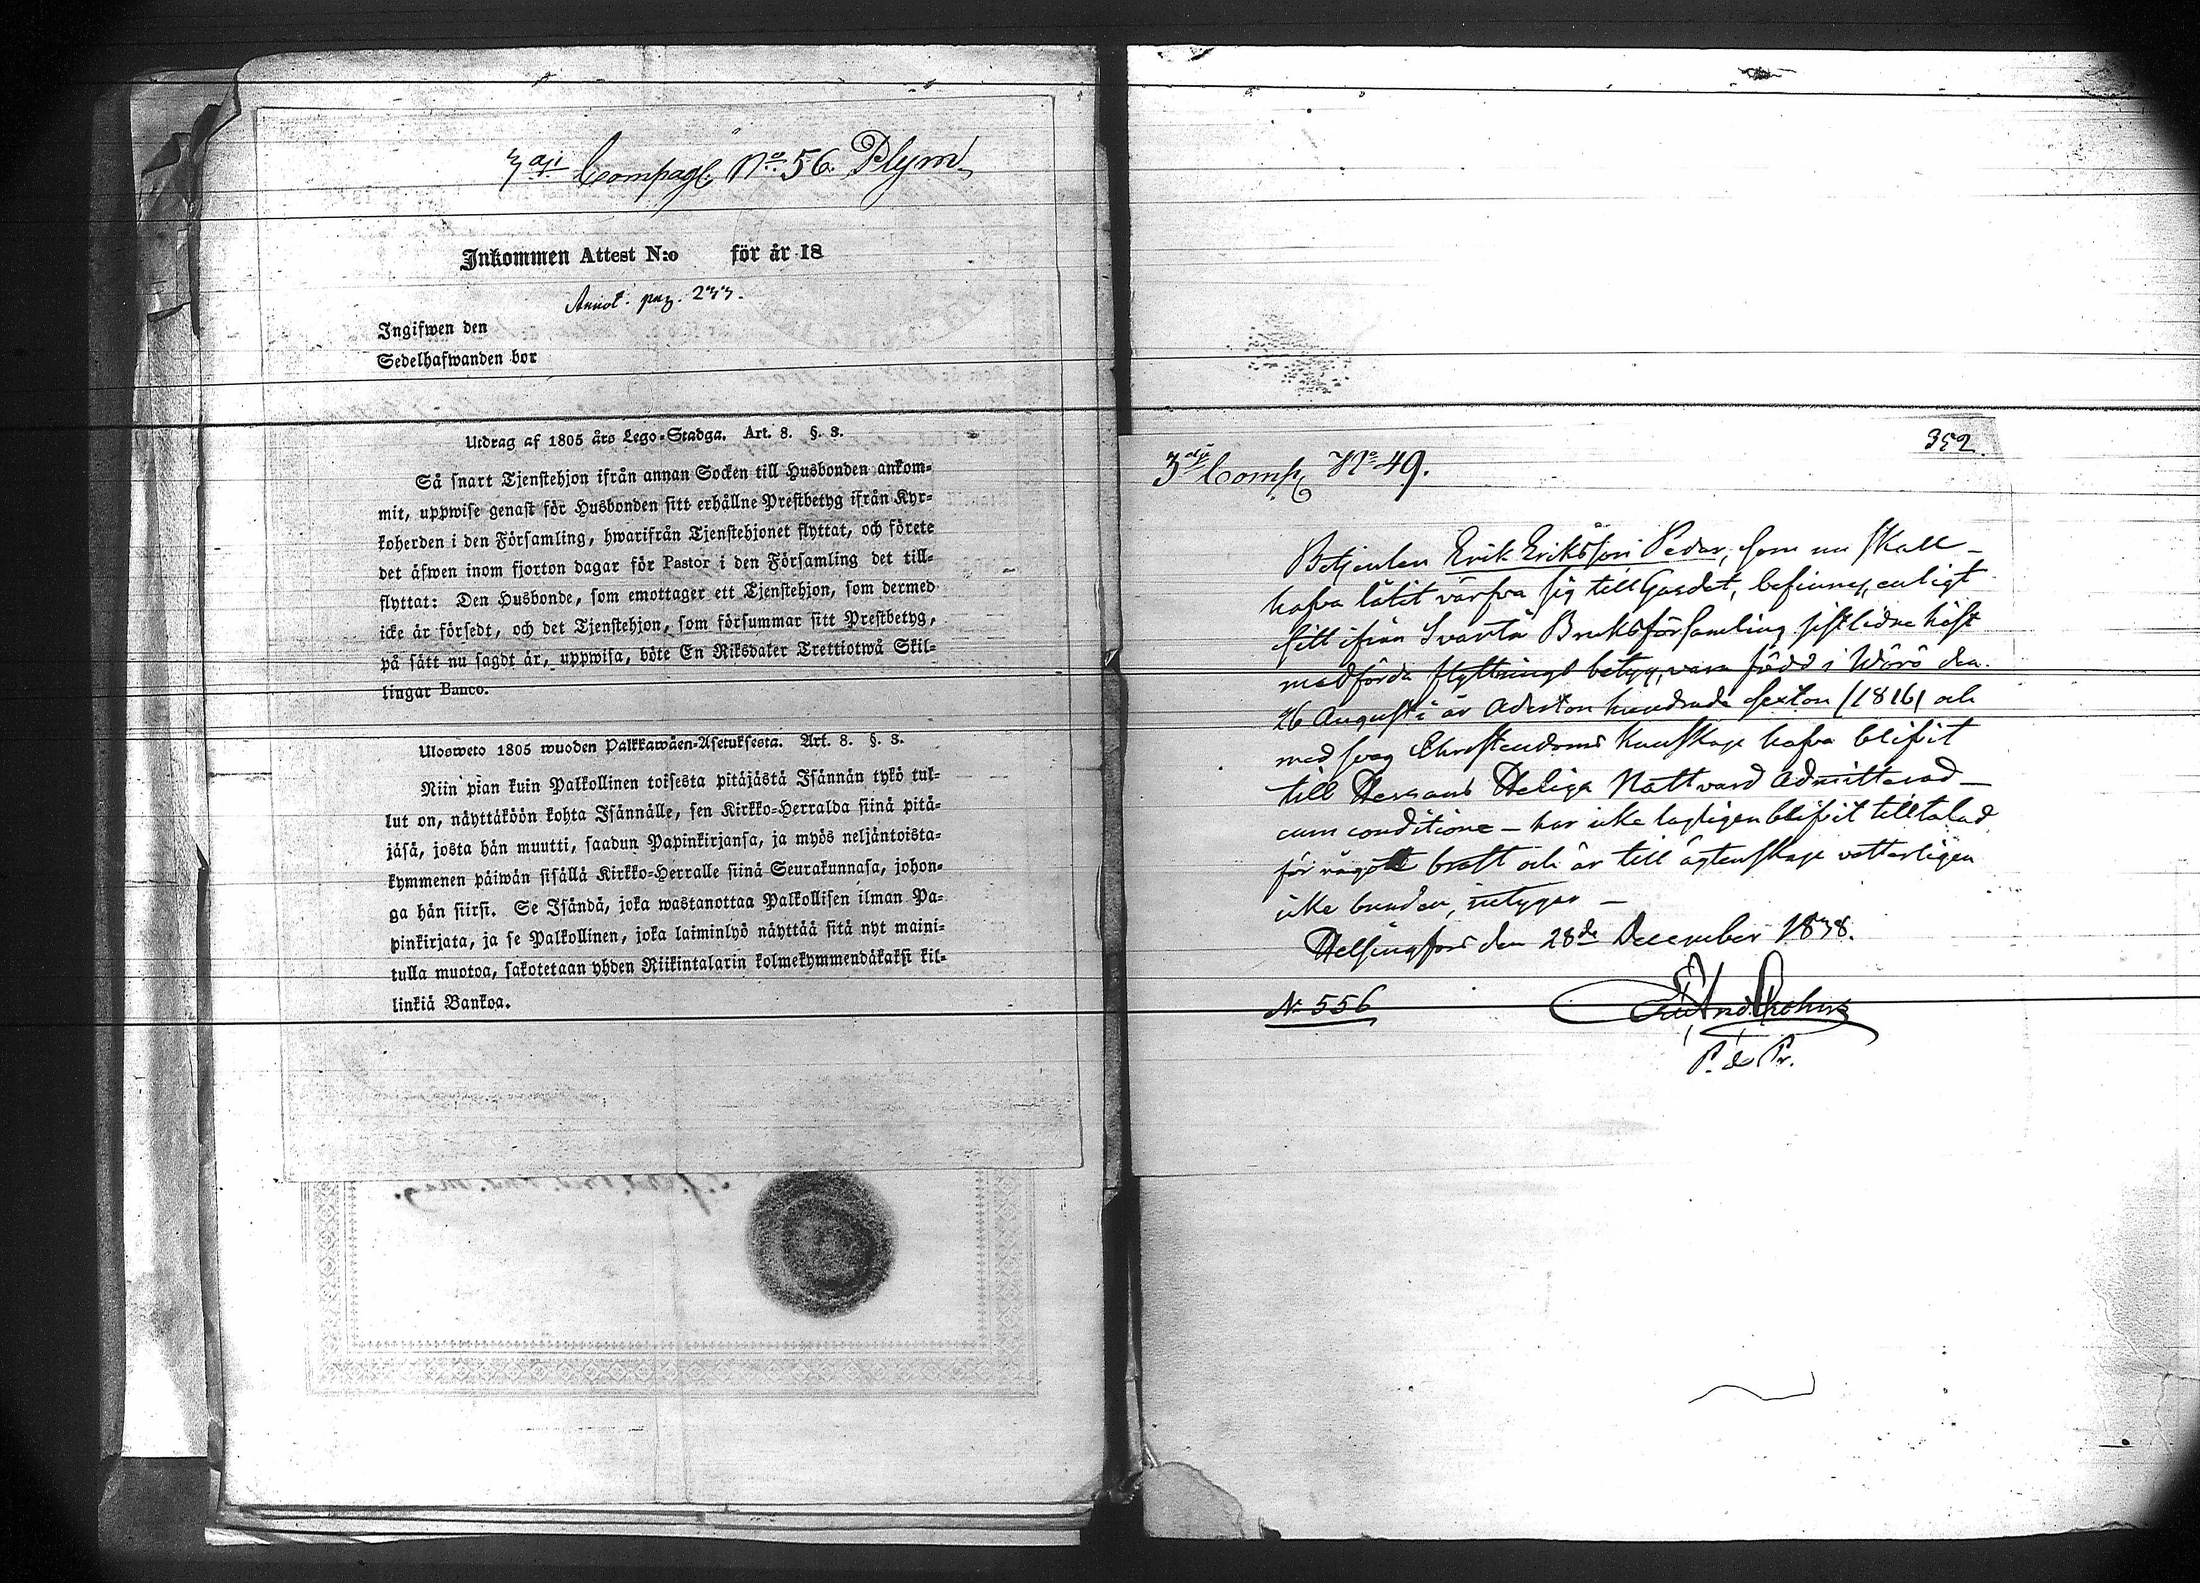 3dji Compagl. No 56. Plym
Inkommen Attest N:o för år 18
Annot. pag. 233.
Ingifwen den
Sedelhafwanden bor
Utdrag af 1805 års Lego-Stadga. Art. 8. §. 3.
Så snart Tjenstehjon ifrån annan Socken till Husbonden ankom-
mit, uppwise genast för Husbonden sitt erhållne Prestbetyg ifrån Kyr-
koherden i den Församling, hwarifrån Tjenstehjonet flyttat, och förete
det äfwen inom fjorton dagar för Pastor i den Församling det till-
flyttat: Den Husbonde, som emottager ett Tjenstehjon, som dermed
icke är försedt, och det Tjenstehjon, som försummar sitt Prestbetyg,
på sätt nu sagdt är, uppwisa, böte En Riksdaler Trettiotwå Skil-
lingar Banco.
Ulosweto 1805 wuoden Palkkawäen-Asetuksesta. Art. 8. §. 3.
Niin pian kuin Palkollinen toisesta pitäjästä Isännän tykö tul-
lut on, näyttäköön kohta Isännälle, sen Kirkko-Herralda siinä pitä-
jäsä, josta hän muutti, saadun Papinkirjansa, ja myös neljäntoista-
kymmenen päiwän sisällä Kirkko-Herralle siinä Seurakunnasa, johon-
ga hän siirsi. Se Isändä, joka wastanottaa Palkollisen ilman Pa-
pinkirjata, ja se Palkollinen, joka laiminlyö näyttää sitä nyt maini-
tulla muotoa, sakotetaan yhden Riikintalarin kolmekymmendäkaksi kil-
linkiä Bankoa.
352.
3dje Comp No 49.
Betjenten Erik Eriksson Peder, som nu skall
hafva låtit värfva sig till Gardet, befinnes, enligt
sitt ifrån Svartå Bruksförsamling sistledne höst
medförda flyttnings betyg, vara född i Wörö den
26 Augusti år Aderton hundrade sexton (1816) och
med svag Christendoms kunskap hafva blifvit
till Herrans Heliga Nattvard Admitterad
cum conditione – har icke lagligen blifvit tilltalad
för något brott och är till ägtenskap vetterligen
icke bunden, intygar –
Helsingfors den 28de December 1838.
N. 556
P. de Pr.